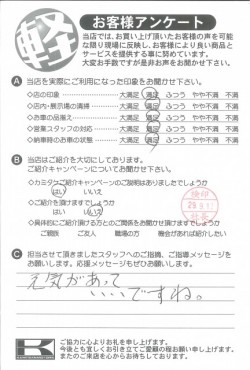 軽
お客様アンケート
当店では、お買い上げ頂いたお客様の声を可能
な限り現場に反映し、お客様により良い商品と
サービスを提供する事に努めています。
大変お手数ですが是非お声をお聞かせ下さい。
A 当店を実際にご利用になった印象をお聞かせ下さい。
◇店の印象 大満足 満足 ふつう やや不満 不満
◇店内・展示場の清掃 大満足 満足 ふつう やや不満 不満
◇お車の品揃え 大満足 満足 ふつう やや不満 不満
◇営業スタッフの対応 大満足 満足 ふつう やや不満 不満
◇納車時のお車の状態 大満足 満足 ふつう やや不満 不満
B 当店はご紹介を大切にしております。
ご紹介キャンペーンについてお聞かせ下さい。
◇カミタケご紹介キャンペーンのご説明はありましたでしょうか
はい いいえ
◇ご紹介を頂けますでしょうか
はい いいえ
◇具体的にご紹介頂ける方とのご関係をお聞かせ頂けますでしょうか
ご親族 ご友人 職場の方 機会があれば紹介したい
C 担当させて頂きましたスタッフへのご指摘、ご指導メッセージを
お願いします。応援メッセージもぜひお願いします。
元気があって
いいですね。
K
ご協力に心よりお礼を申し上げます。
今後とも宜しくお引き立てご愛顧の程お願い申し上げます。
またのご来店を心からお待ちしております。